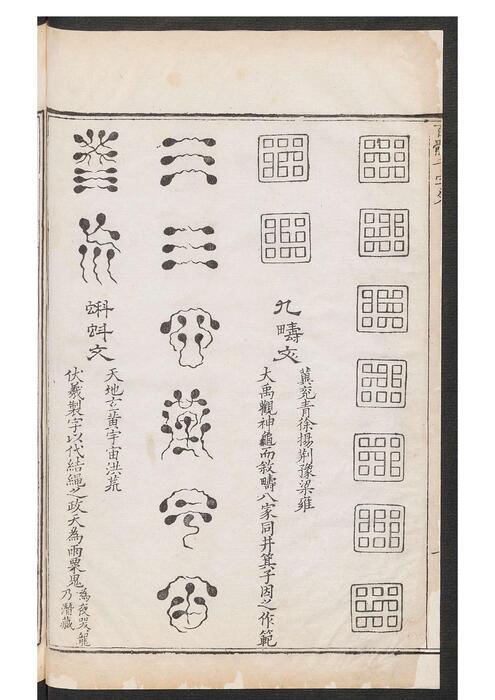 百體千字文
九疇文
冀兗青徐揚荆豫梁雍
大禹觀神龜而敘疇八家同井箕子因之作範
蝌蚪文
天地玄黃宇宙洪荒
伏羲製字以代結繩之政天為雨粟鬼
為夜哭龍
乃潛藏